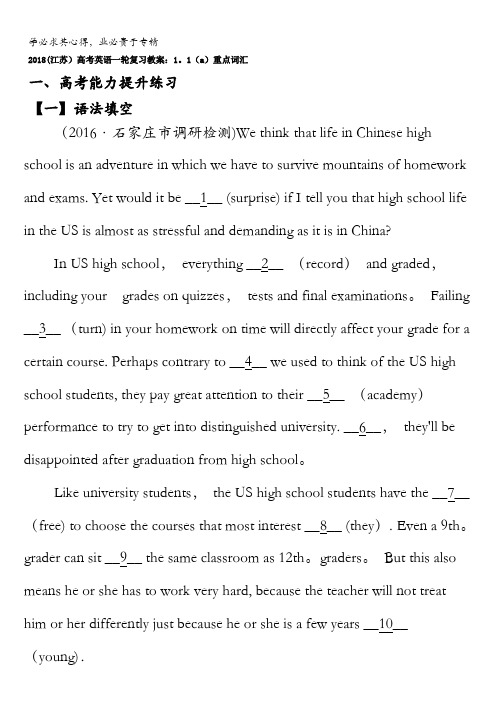 学必求其心得，业必贵于专精
2018(江苏）高考英语一轮复习教案：1。1（a）重点词汇
一、高考能力提升练习
【一】语法填空
（2016·石家庄市调研检测)We think that life in Chinese high
school is an adventure in which we have to survive mountains of homework
and exams. Yet would it be __1__ (surprise) if I tell you that high school life
in the US is almost as stressful and demanding as it is in China?
In US high school， everything __2__ （record） and graded，
including your grades on quizzes， tests and final examinations。 Failing
__3__ （turn) in your homework on time will directly affect your grade for a
certain course. Perhaps contrary to __4__ we used to think of the US high
school students, they pay great attention to their __5__ （academy）
performance to try to get into distinguished university. __6__， they'll be
disappointed after graduation from high school。
Like university students， the US high school students have the __7__
（free) to choose the courses that most interest __8__ (they）. Even a 9th。
grader can sit __9__ the same classroom as 12th。graders。 But this also
means he or she has to work very hard, because the teacher will not treat
him or her differently just because he or she is a few years __10__
（young).